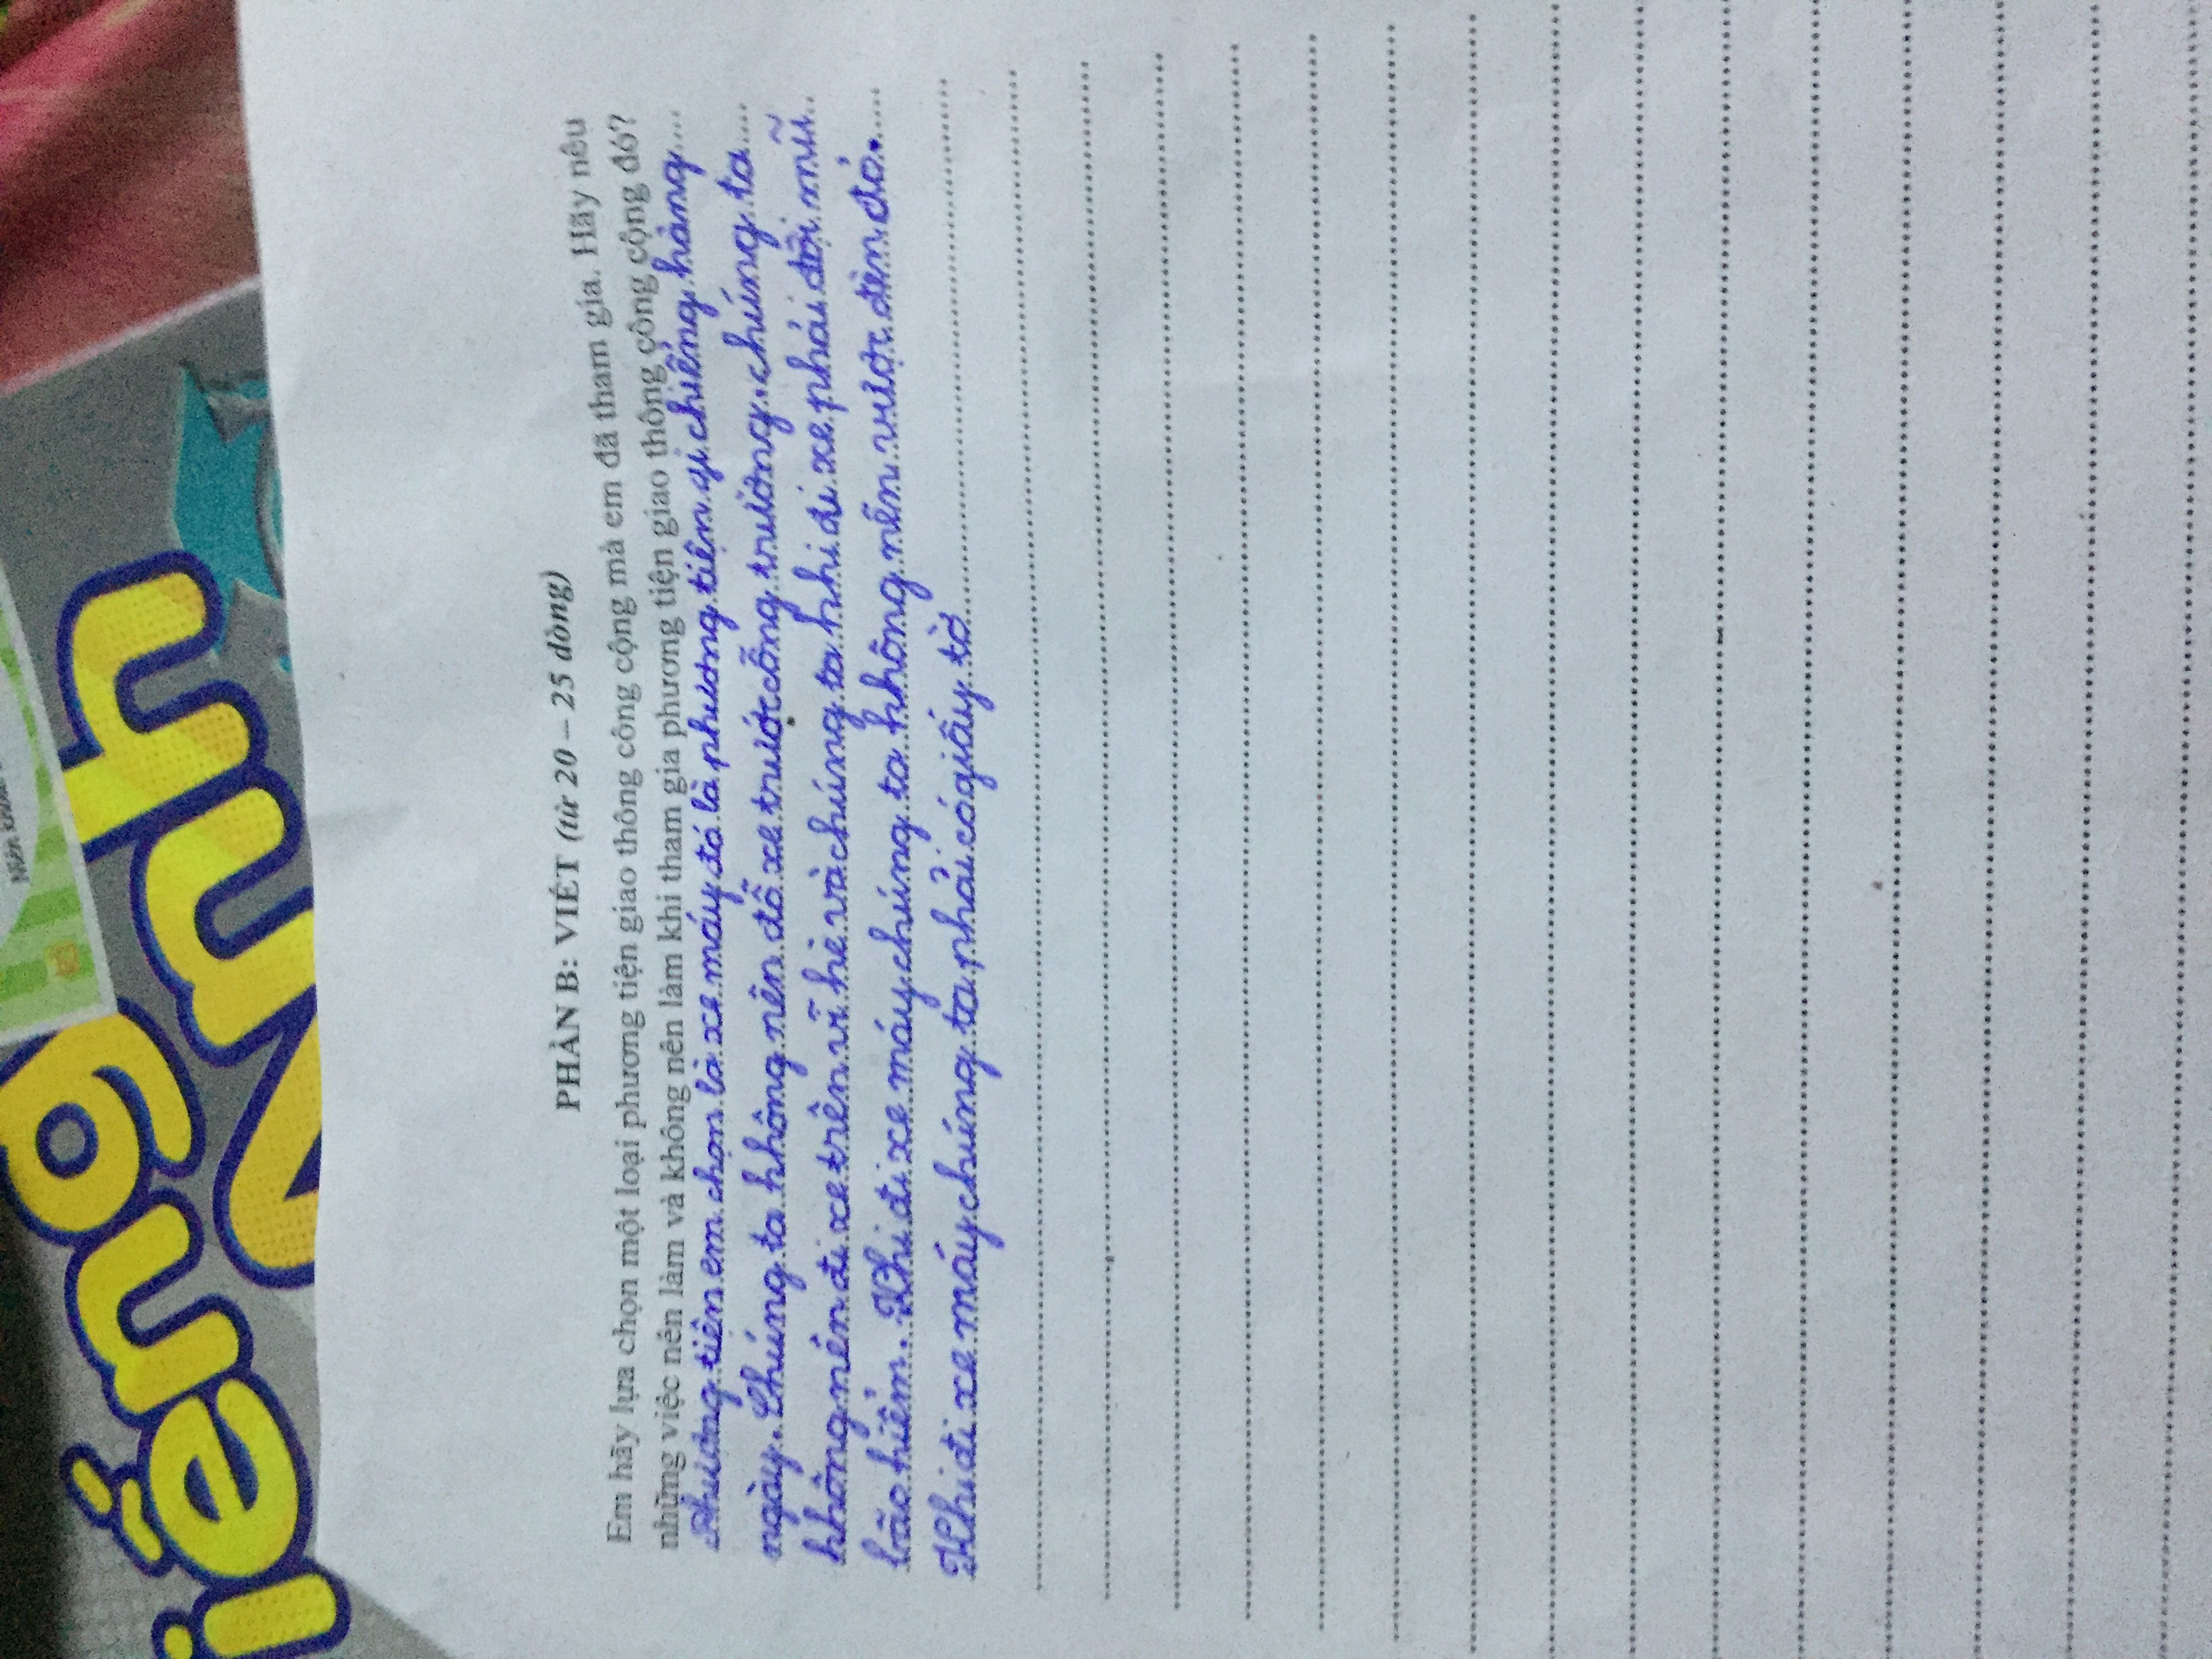 iếng
Anh
PHẦN B: VIẾT (từ 20 – 25 dòng)
Em hãy lựa chọn một loại phương tiện giao thông công cộng mà em đã tham gia. Hãy nêu
những việc nên làm và không nên làm khi tham gia phương tiện giao thông công cộng đó?
Phương tiện em chọn là xe máy đó là phương tiện gi chiếng hàng
ngày. Chúng ta không nên đỗ xe trước cổng trường, chúng ta
không nên đi xe trên vĩ hè và chúng ta khi đi xe phải đội mũ
bảo hiểm. Khi đi xe máy chúng ta không nên vượt đèn đỏ.
Khi đi xe máy chúng ta phải có giấy tờ